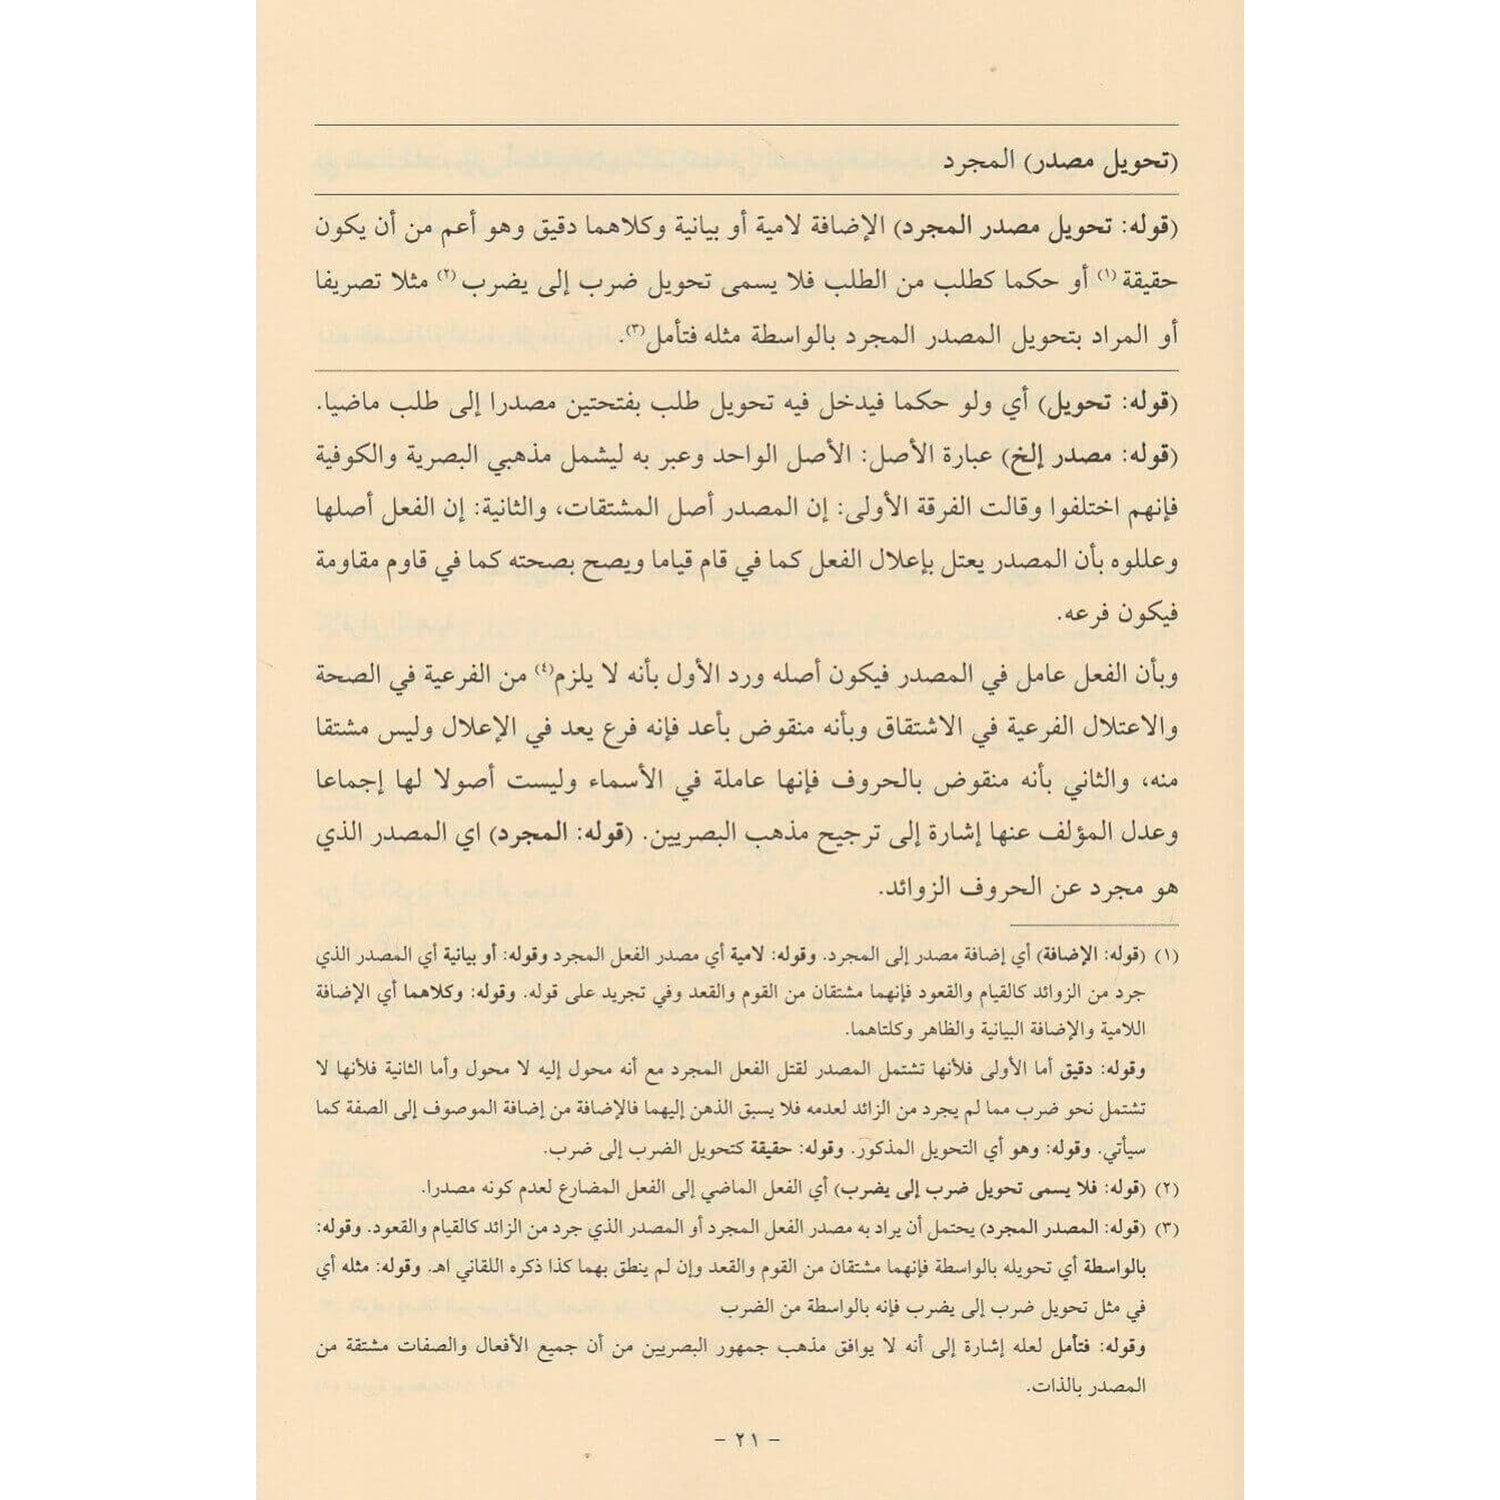 (تحويل مصدر) المجرد
(قوله: تحويل مصدر المجرد) الإضافة لامية أو بيانية وكلاهما دقيق وهو أعم من أن يكون
حقيقة (١) أو حكما كطلب من الطلب فلا يسمى تحويل ضرب إلى يضرب (٢) مثلا تصريفا
أو المراد بتحويل المصدر المجرد بالواسطة مثله فتأمل(٣).
(قوله: تحويل) أي ولو حكما فيدخل فيه تحويل طلب بفتحتين مصدرا إلى طلب ماضيا.
(قوله: مصدر إلخ) عبارة الأصل: الأصل الواحد وعبر به ليشمل مذهبي البصرية والكوفية
فإنهم اختلفوا وقالت الفرقة الأولى: إن المصدر أصل المشتقات، والثانية: إن الفعل أصلها
وعللوه بأن المصدر يعتل بإعلال الفعل كما في قام قياما ويصح بصحته كما في قاوم مقاومة
فيكون فرعه.
وبأن الفعل عامل في المصدر فيكون أصله ورد الأول بأنه لا يلزم(٤) من الفرعية في الصحة
والاعتلال الفرعية في الاشتقاق وبأنه منقوض بأعد فإنه فرع يعد في الإعلال وليس مشتقا
منه، والثاني بأنه منقوض بالحروف فإنها عاملة في الأسماء وليست أصولا لها إجماعا
وعدل المؤلف عنها إشارة إلى ترجيح مذهب البصريين. (قوله: المجرد) اي المصدر الذي
هو مجرد عن الحروف الزوائد.
(١) (قوله: الإضافة) أي إضافة مصدر إلى المجرد. وقوله: لامية أي مصدر الفعل المجرد وقوله: أو بيانية أي المصدر الذي
جرد من الزوائد كالقيام والقعود فإنهما مشتقان من القوم والقعد وفي تجريد على قوله. وقوله: وكلاهما أي الإضافة
اللامية والإضافة البيانية والظاهر وكلتاهما.
وقوله: دقيق أما الأولى فلأنها تشتمل المصدر لقتل الفعل المجرد مع أنه محول إليه لا محول وأما الثانية فلأنها لا
تشتمل نحو ضرب مما لم يجرد من الزائد لعدمه فلا يسبق الذهن إليهما فالإضافة من إضافة الموصوف إلى الصفة كما
سيأتي. وقوله: وهو أي التحويل المذكور. وقوله: حقيقة كتحويل الضرب إلى ضرب.
(٢) (قوله: فلا يسمى تحويل ضرب إلى يضرب) أي الفعل الماضي إلى الفعل المضارع لعدم كونه مصدرا.
(٣) (قوله: المصدر المجرد) يحتمل أن يراد به مصدر الفعل المجرد أو المصدر الذي جرد من الزائد كالقيام والقعود. وقوله:
بالواسطة أي تحويله بالواسطة فإنهما مشتقان من القوم والقعد وإن لم ينطق بهما كذا ذكره اللقاني اهـ. وقوله: مثله أي
في مثل تحويل ضرب إلى يضرب فإنه بالواسطة من الضرب
وقوله: فتأمل لعله إشارة إلى أنه لا يوافق مذهب جمهور البصريين من أن جميع الأفعال والصفات مشتقة من
المصدر بالذات.
- ٢١ -